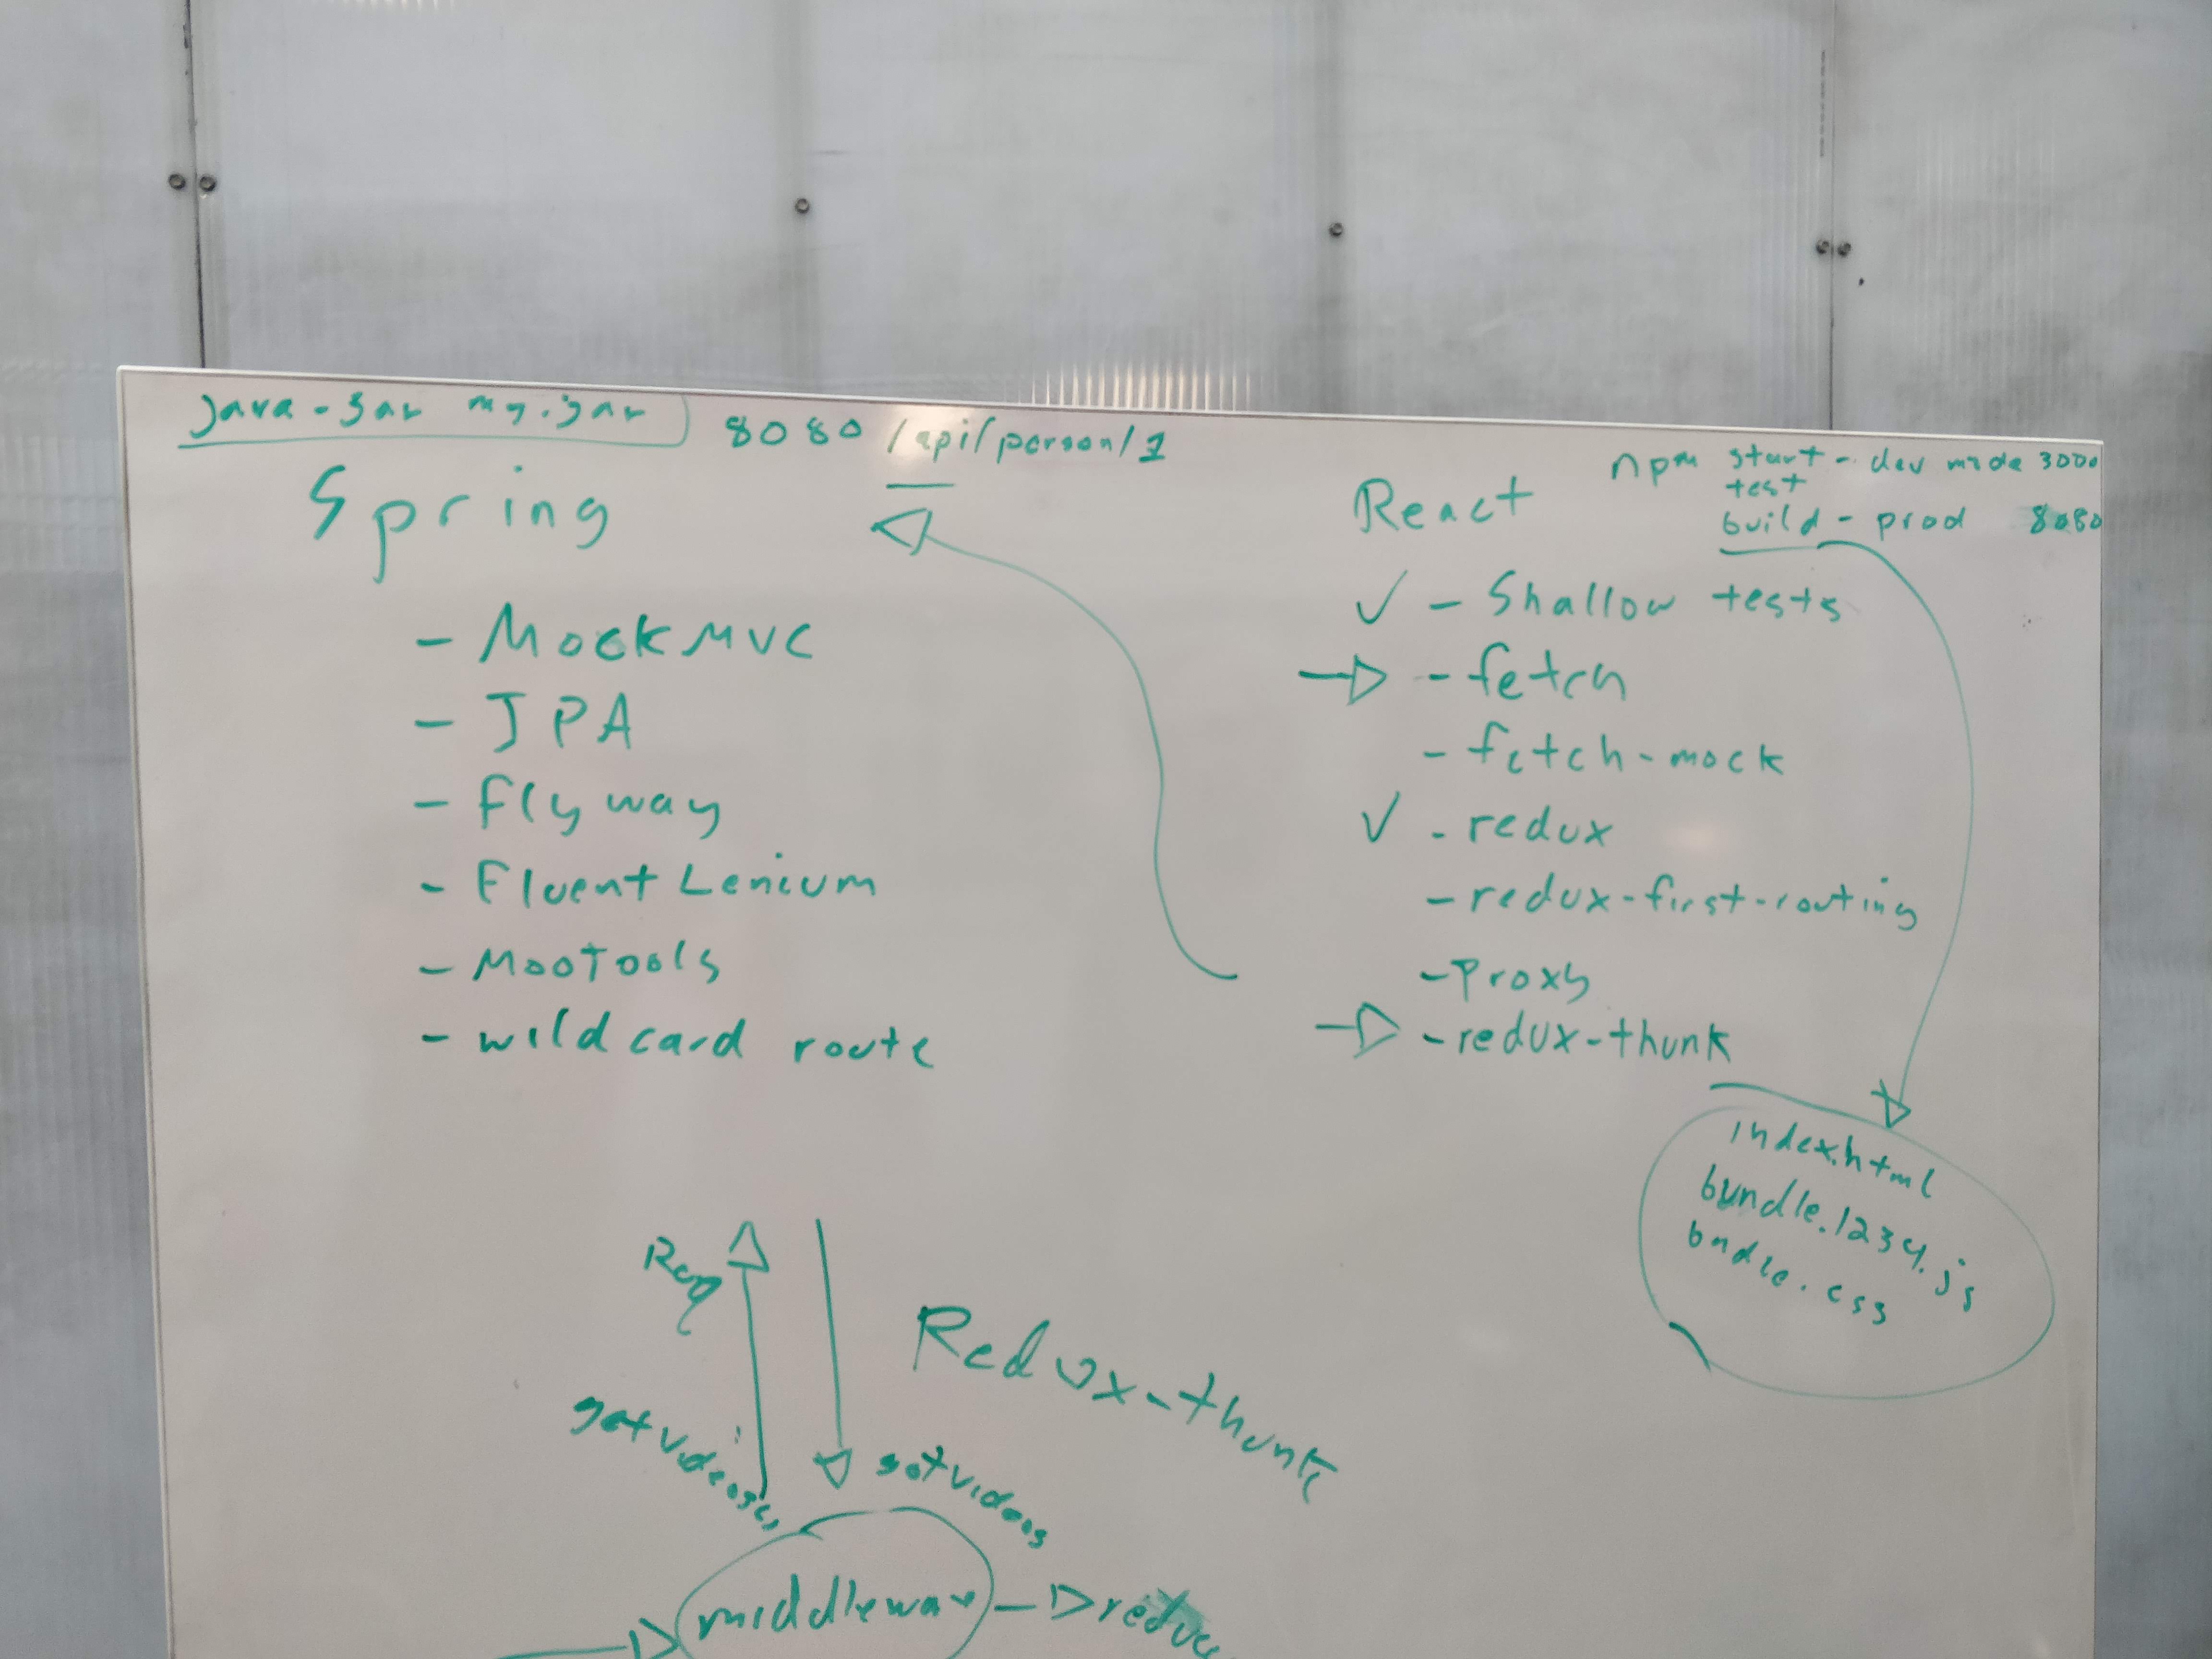 java -jar my.jar 8080 /api/person/1
Spring
- MockMVC
- JPA
- Flyway
- FluentLenium
- MooTools
- wildcard route
npm start - dev mode 3000
test
build - prod 8080
React
✓ - Shallow tests
→ - fetch
- fetch-mock
✓ - redux
- redux-first-routing
- Proxy
→ - redux-thunk
index.html
bundle.1234.js
bndle.css
Req
Redux-thunk
getvideos
setvideos
middleware → reduce